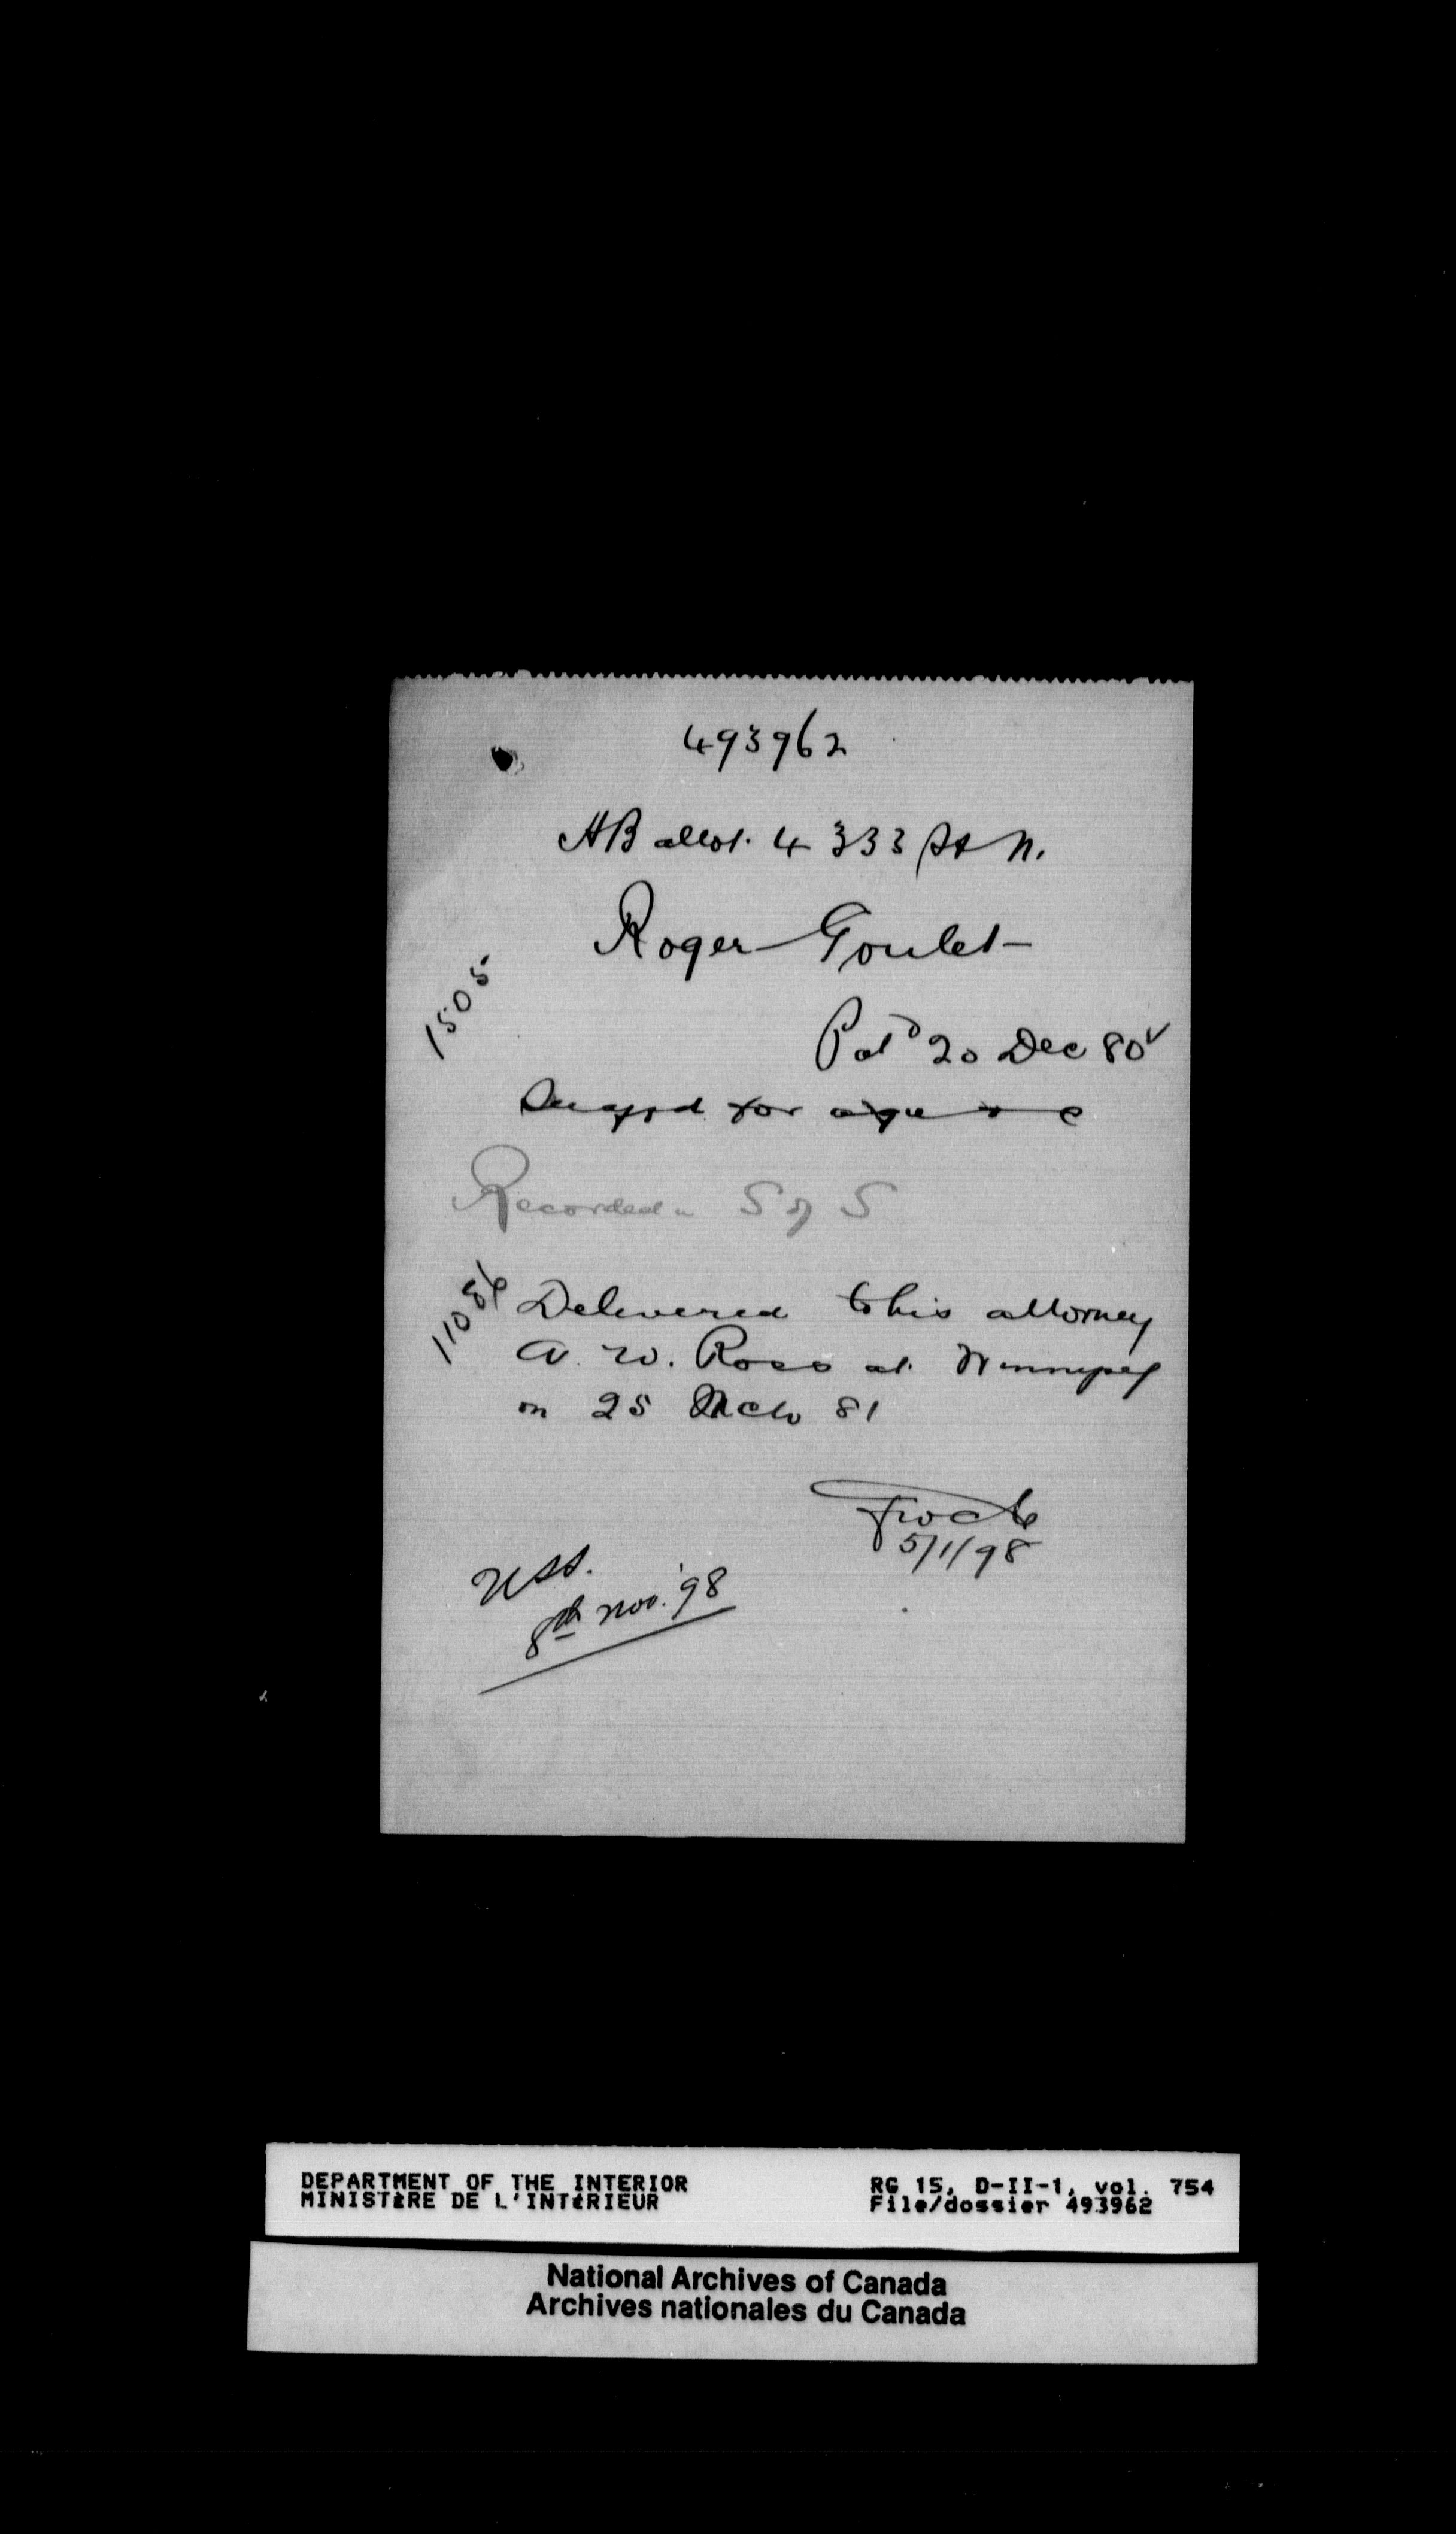 493962
HB allot. 4 333 St N.
Roger Goulet
1505
Pat'd 20 Dec 80 ✓
for
Recorded in S of S
Delivered to his attorney
A. W. Ross at Winnipeg
on 25 Mch 81
5/1/98
8th Nov. '98
DEPARTMENT OF THE INTERIOR
MINISTÈRE DE L'INTÉRIEUR
RG 15, D-II-1, vol. 754
File/dossier 493962
National Archives of Canada
Archives nationales du Canada